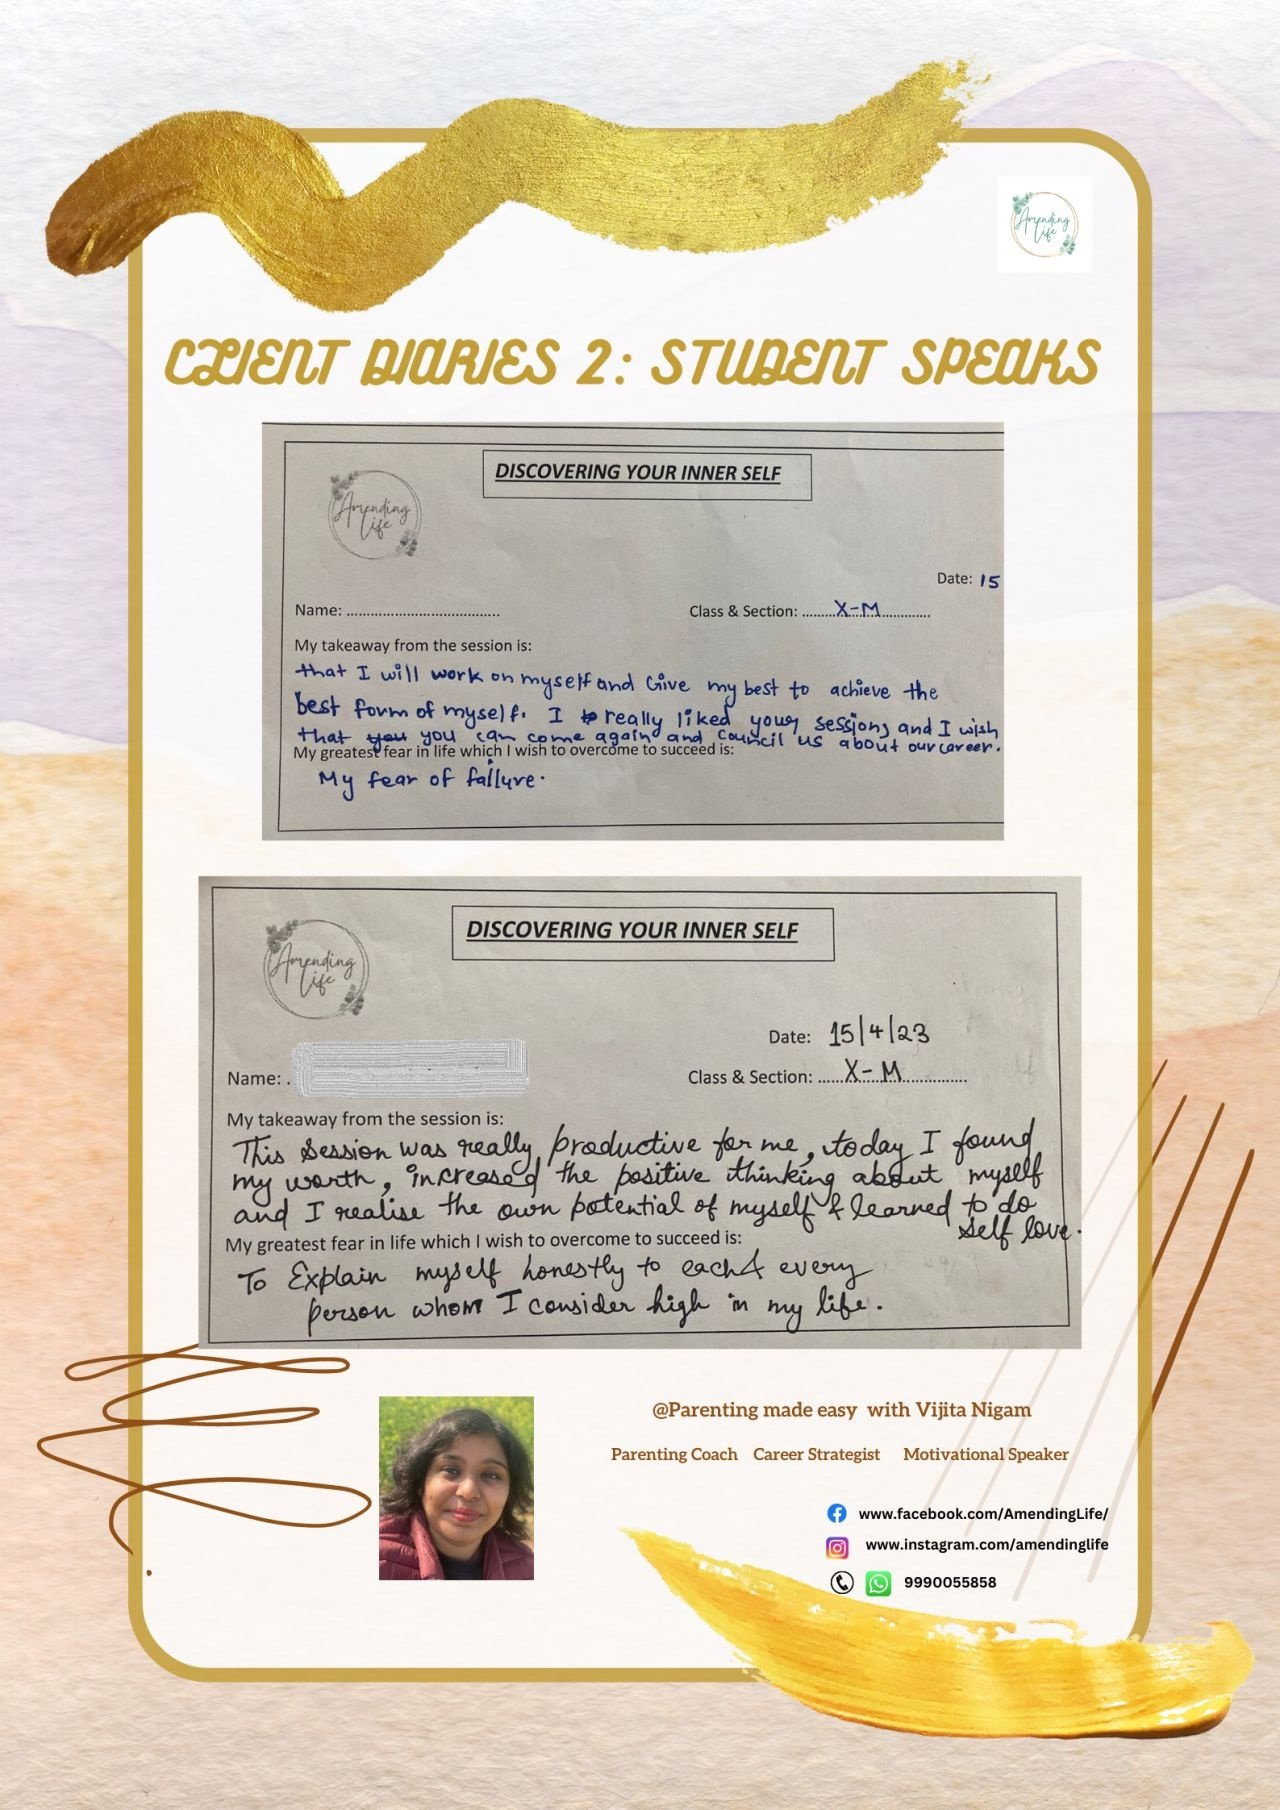 Amending
Life
CLIENT DIARIES 2: STUDENT SPEAKS
DISCOVERING YOUR INNER SELF
Amending
Life
Date: 15
Name: ......................................
Class & Section: ........X-M.............
My takeaway from the session is:
that I will work on myself and Give my best to achieve the
best form of myself. I really liked your sessions and I wish
that you you can come again and council us about our career.
My greatest fear in life which I wish to overcome to succeed is:
My fear of failure.
DISCOVERING YOUR INNER SELF
Amending
Life
Date: 15/4/23
Name: .
Class & Section: ......X-M................
My takeaway from the session is:
This Session was really productive for me, today I found
my worth, increased the positive thinking about myself
and I realise the own potential of myself & learned to do
self love.
My greatest fear in life which I wish to overcome to succeed is:
To Explain myself honestly to each & every
person whom I consider high in my life.
@Parenting made easy with Vijita Nigam
Parenting Coach Career Strategist Motivational Speaker
www.facebook.com/AmendingLife/
www.instagram.com/amendinglife
9990055858